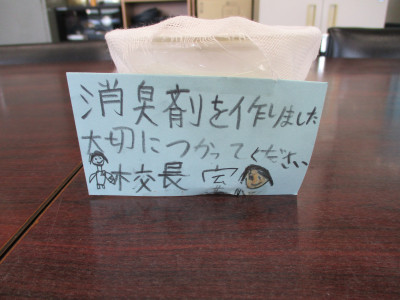 消臭剤を作りました
大切につかってください
校長室